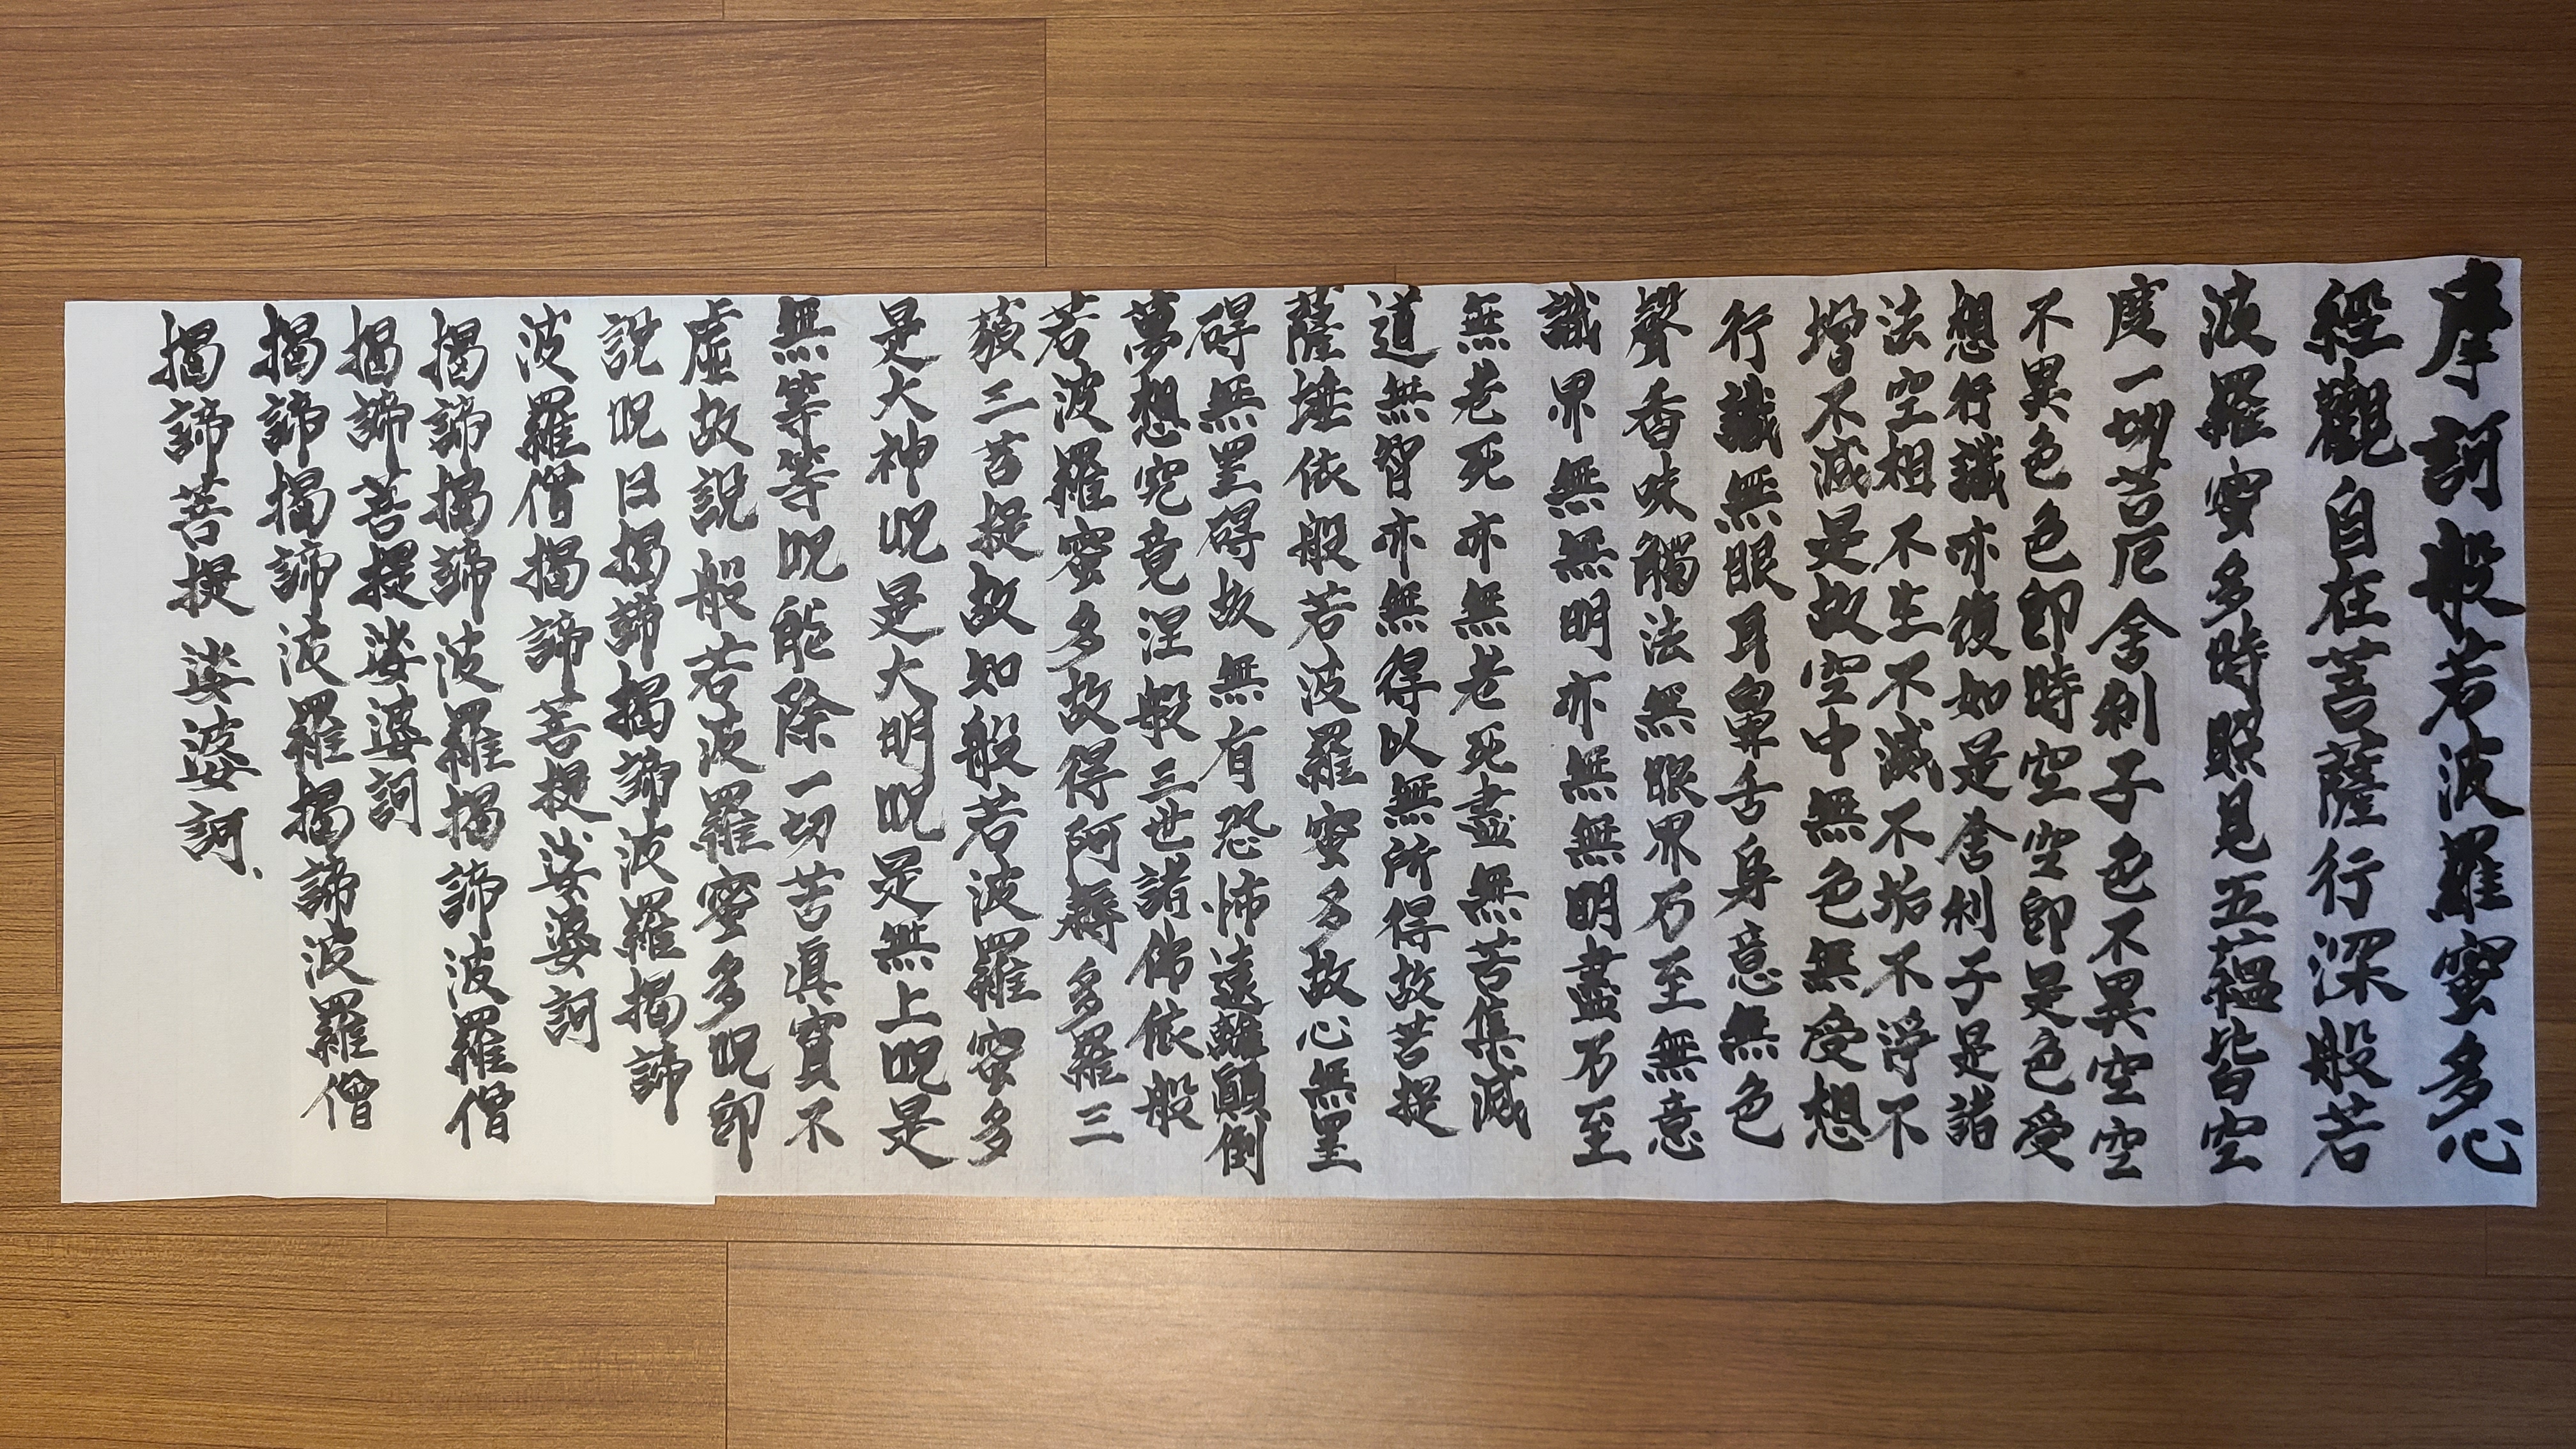 摩訶般若波羅蜜多心
經觀自在菩薩行深般若
波羅蜜多時照見五蘊皆空
度一切苦厄舍利子色不異空空
不異色色卽時空空卽是色受
想行識亦復如是舍利子是諸
法空相不生不滅不垢不淨不
增不減是故空中無色無受想
行識無眼耳鼻舌身意無色
聲香味觸法無眼界乃至無意
識界無無明亦無無明盡乃至
無老死亦無老死盡無苦集滅
道無智亦無得以無所得故菩提
薩埵依般若波羅蜜多故心無罣
碍無罣碍故無有恐怖遠離顚倒
夢想究竟涅般三世諸佛依般
若波羅蜜多故得阿耨多羅三
藐三菩提故知般若波羅蜜多
是大神呪是大明呪是無上呪是
無等等呪能除一切苦眞實不
虛故說般若波羅蜜多呪卽
說呪曰揭諦揭諦波羅揭諦
波羅僧揭諦菩提娑婆訶
揭諦揭諦波羅揭諦波羅僧
揭諦菩提娑婆訶
揭諦揭諦波羅揭諦波羅僧
揭諦菩提娑婆訶